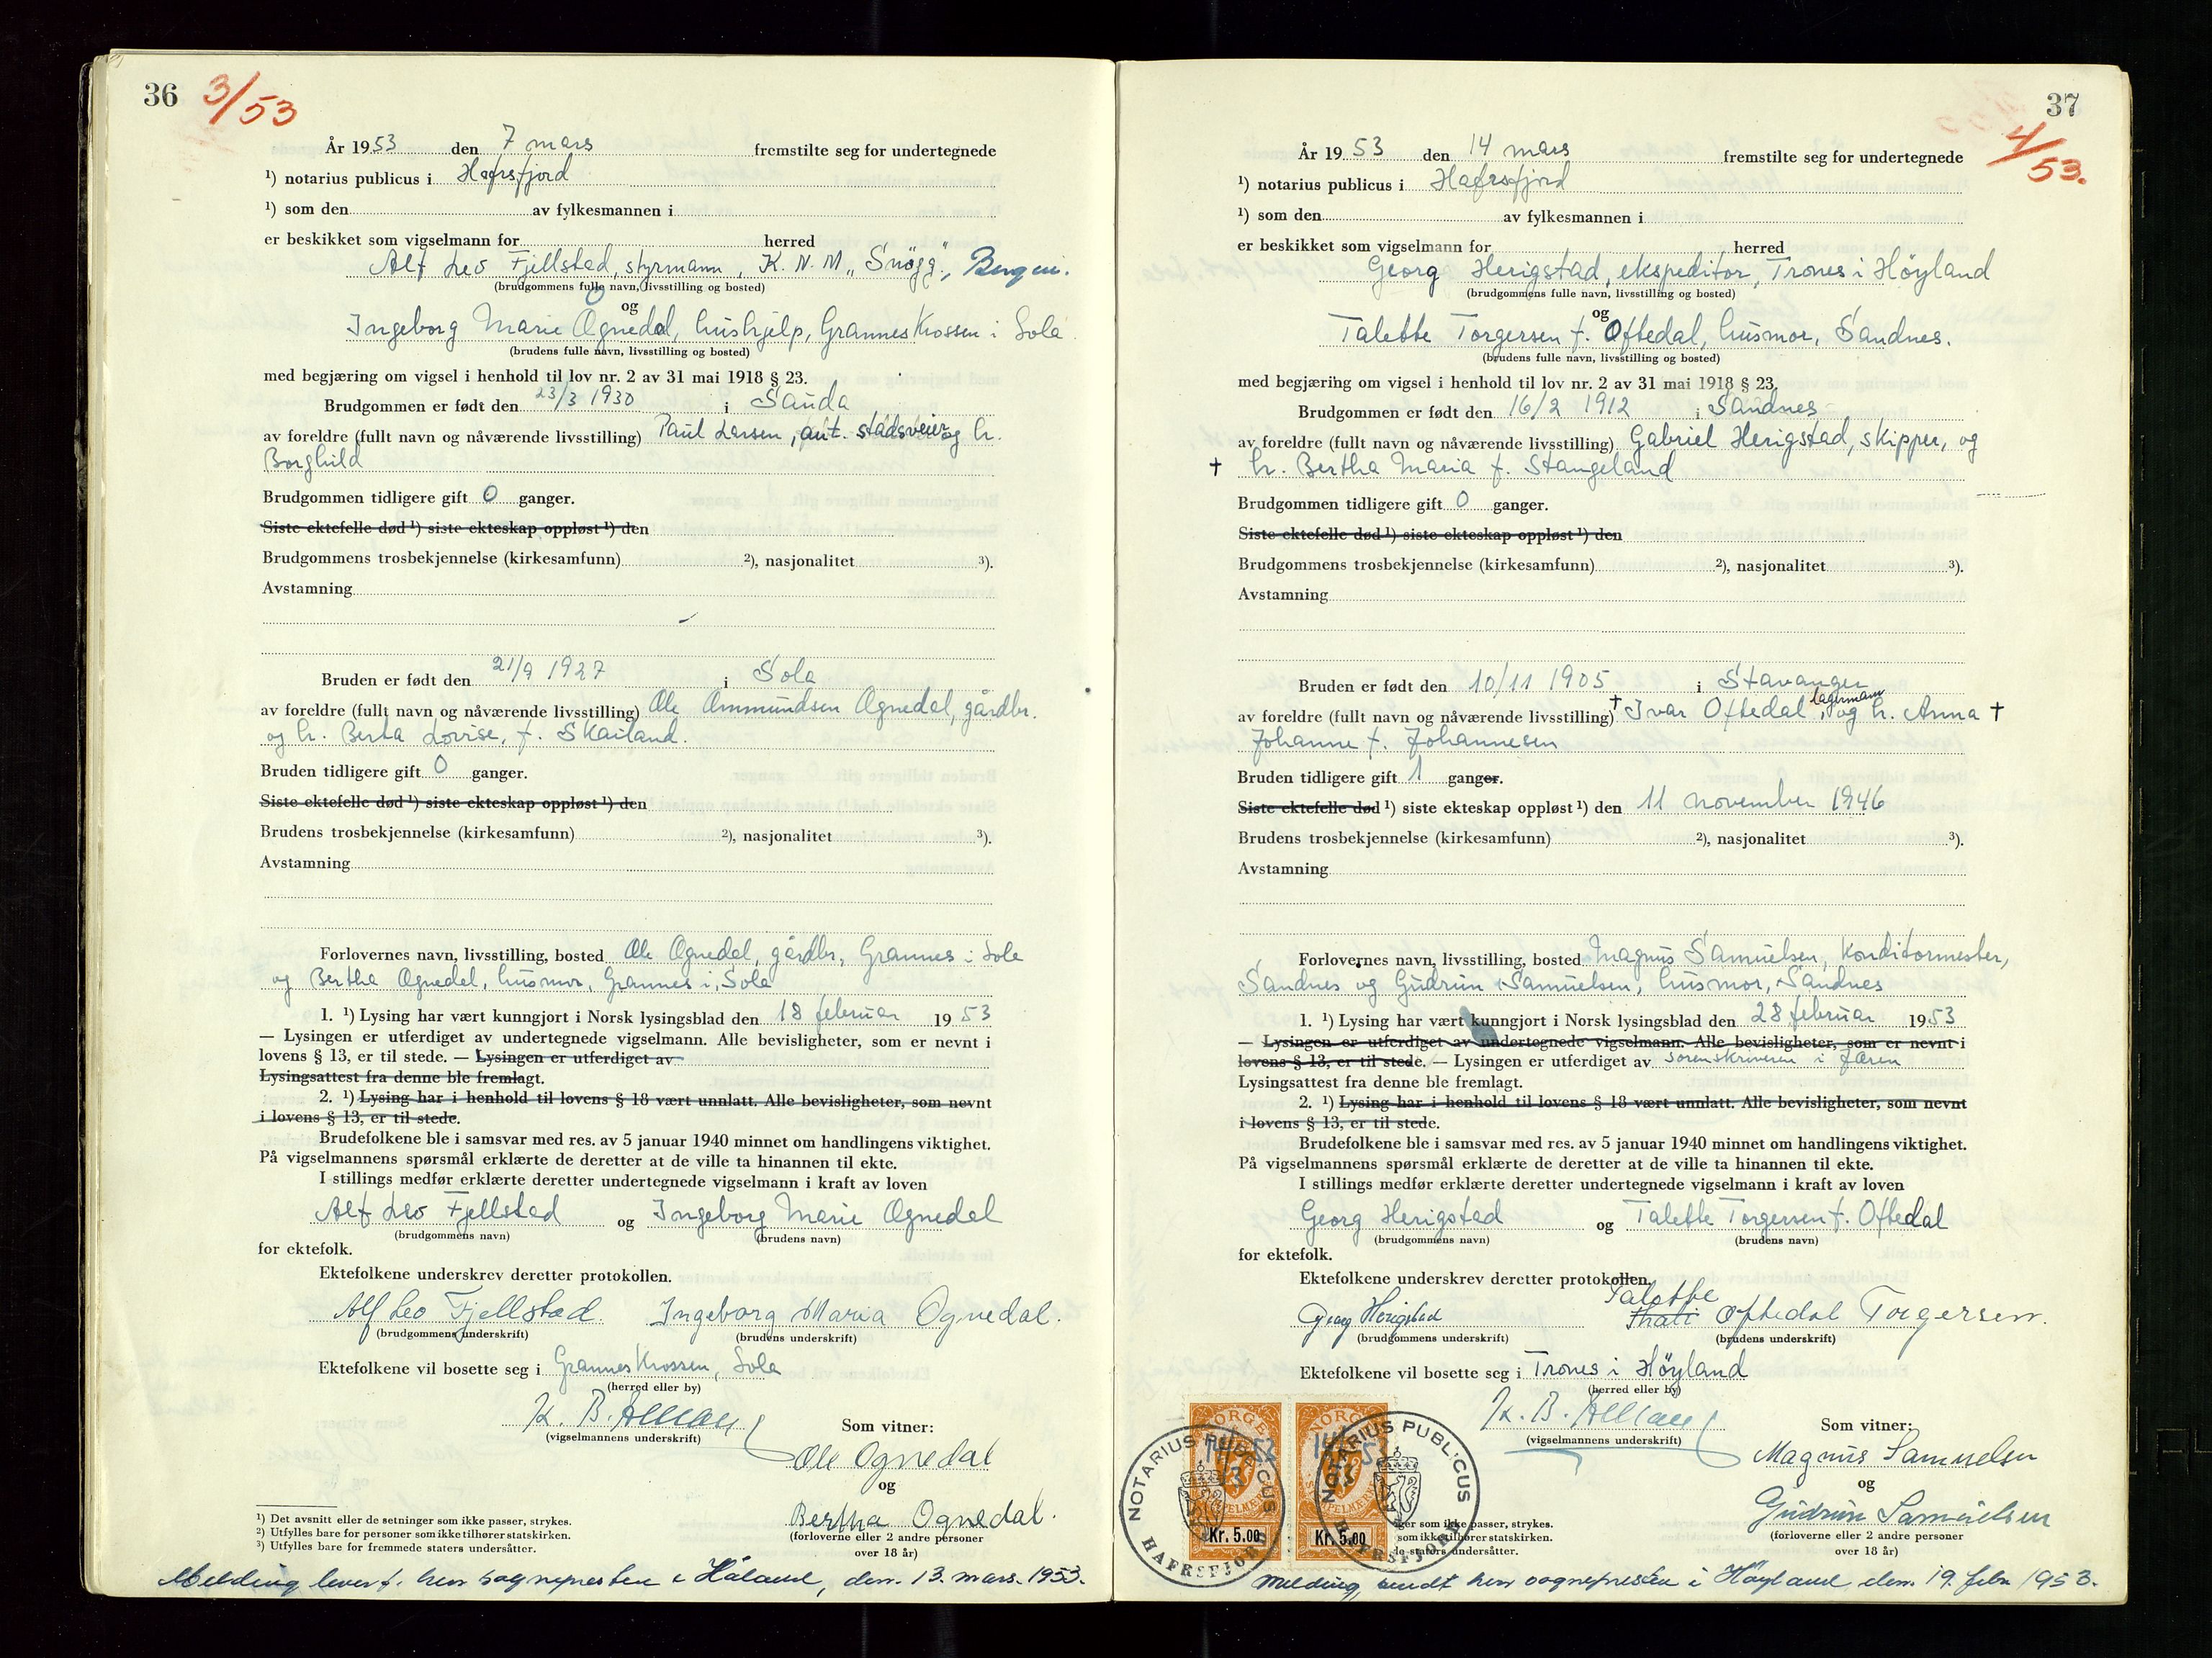 36 3/53
År 1953 den 7 mars fremstilte seg for undertegnede
¹) notarius publicus i Hafrsfjord
¹) som den av fylkesmannen i
er beskikket som vigselmann for herred
Alf Leo Fjellstad, styrmann, K.N.M „Snøgg", Bergen.
(brudgommens fulle navn, livsstilling og bosted)
og
Ingeborg Marie Ognedal, hushjelp, Grannes Krossen i Sola
(brudens fulle navn, livsstilling og bosted)
med begjæring om vigsel i henhold til lov nr. 2 av 31 mai 1918 § 23.
Brudgommen er født den 23/3 1930 i Sauda
av foreldre (fullt navn og nåværende livsstilling) Paul Larsen, og h.
Borghild
Brudgommen tidligere gift 0 ganger.
Siste ektefelle død ¹) siste ekteskap oppløst ¹) den
Brudgommens trosbekjennelse (kirkesamfunn) ²), nasjonalitet ³).
Avstamning
Bruden er født den 21/9 1927 i Sola
av foreldre (fullt navn og nåværende livsstilling) Ole Ommundsen Ognedal, gårdbr.
og h. Berta Lovise, f. Skailand.
Bruden tidligere gift 0 ganger.
Siste ektefelle død ¹) siste ekteskap oppløst ¹) den
Brudens trosbekjennelse (kirkesamfunn) ²), nasjonalitet ³).
Avstamning
Forlovernes navn, livsstilling, bosted Ole Ognedal, gårdbr, Grannes i Sola
og Bertha Ognedal, husmor, Grannes i Sola
1. ¹) Lysing har vært kunngjort i Norsk lysingsblad den 18 februar 1953
— Lysingen er utferdiget av undertegnede vigselmann. Alle bevisligheter, som er nevnt i
lovens § 13, er til stede. — Lysingen er utferdiget av
Lysingsattest fra denne ble fremlagt.
2. ¹) Lysing har i henhold til lovens § 18 vært unnlatt. Alle bevisligheter, som nevnt
i lovens § 13, er til stede.
Brudefolkene ble i samsvar med res. av 5 januar 1940 minnet om handlingens viktighet.
På vigselmannens spørsmål erklærte de deretter at de ville ta hinannen til ekte.
I stillings medfør erklærte deretter undertegnede vigselmann i kraft av loven
Alf Leo Fjellstad og Ingeborg Marie Ognedal
(brudgommens navn) (brudens navn)
for ektefolk.
Ektefolkene underskrev deretter protokollen.
Alf Leo Fjellstad. Ingeborg Maria Ognedal.
(brudgommens underskrift) (brudens underskrift)
Ektefolkene vil bosette seg i Grannes Krossen, Sola
(herred eller by)
K. B.
(vigselmannens underskrift)
Som vitner:
Ole Ognedal
og
Bertha Ognedal.
(forloverne eller 2 andre personer
over 18 år)
¹) Det avsnitt eller de setninger som ikke passer, strykes.
²) Utfylles bare for personer som ikke tilhører statskirken.
³) Utfylles bare for fremmede staters undersåtter.
Melding levert. hos sognepresten i Håland, den. 13. mars. 1953.
37 4/53.
År 1953 den 14 mars fremstilte seg for undertegnede
¹) notarius publicus i Hafrsfjord
¹) som den av fylkesmannen i
er beskikket som vigselmann for herred
Georg Herigstad, ekspeditor, Trones i Höyland
(brudgommens fulle navn, livsstilling og bosted)
og
Talette Torgersen f. Oftedal, husmor, Sandnes.
(brudens fulle navn, livsstilling og bosted)
med begjæring om vigsel i henhold til lov nr. 2 av 31 mai 1918 § 23.
Brudgommen er født den 16/2 1912 i Sandnes
av foreldre (fullt navn og nåværende livsstilling) Gabriel Herigstad, skipper, og
† h. Bertha Maria f. Stangeland
Brudgommen tidligere gift 0 ganger.
Siste ektefelle død ¹) siste ekteskap oppløst ¹) den
Brudgommens trosbekjennelse (kirkesamfunn) ²), nasjonalitet ³).
Avstamning
Bruden er født den 10/11 1905 i Stavanger
av foreldre (fullt navn og nåværende livsstilling) † Ivar Oftedal, lagermann og h. Anna †
Johanne f. Johannesen
Bruden tidligere gift 1 ganger.
Siste ektefelle død ¹) siste ekteskap oppløst ¹) den 11 november 1946
Brudens trosbekjennelse (kirkesamfunn) ²), nasjonalitet ³).
Avstamning
Forlovernes navn, livsstilling, bosted Magnus Samuelsen, Konditormester,
Sandnes og Gudrun Samuelsen, husmor, Sandnes
1. ¹) Lysing har vært kunngjort i Norsk lysingsblad den 28 februar 1953
— Lysingen er utferdiget av undertegnede vigselmann. Alle bevisligheter, som er nevnt i
lovens § 13, er til stede. — Lysingen er utferdiget av sorenskriveren i Jæren
Lysingsattest fra denne ble fremlagt.
2. ¹) Lysing har i henhold til lovens § 18 vært unnlatt. Alle bevisligheter, som nevnt
i lovens § 13, er til stede.
Brudefolkene ble i samsvar med res. av 5 januar 1940 minnet om handlingens viktighet.
På vigselmannens spørsmål erklærte de deretter at de ville ta hinannen til ekte.
I stillings medfør erklærte deretter undertegnede vigselmann i kraft av loven
Georg Herigstad og Talette Torgersen f. Oftedal
(brudgommens navn) (brudens navn)
for ektefolk.
Ektefolkene underskrev deretter protokollen.
Talette
Georg Herigstad Oftedal Torgersen.
(brudgommens underskrift) (brudens underskrift)
Ektefolkene vil bosette seg i Trones i Höyland
(herred eller by)
K. B.
(vigselmannens underskrift)
Som vitner:
Magnus Samuelsen
og
Gudrun Samuelsen
(forloverne eller 2 andre personer
over 18 år)
NORGE NORGE
Kr. 5.00 Kr. 5.00
NOTARIUS PUBLICUS HAFRSFJORD
NOTARIUS PUBLICUS HAFRSFJORD
ger som ikke passer, strykes.
som ikke tilhører statskirken.
de staters undersåtter.
Melding, sendt hos sognepresten i Höyland den. 19. febr 1953.